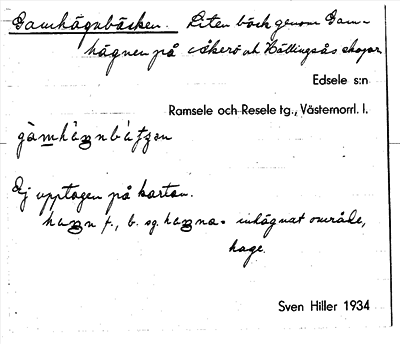 Gamhägnbäcken. Liten bäck genom Gam-
hägnen på Åkerö och Hällingsås skogar.
Edsele s:n
Ramsele och Resele tg., Västernorrl. l.
Ej upptagen på kartan.
f., b. sg. inhägnat område,
hage.
Sven Hiller 1934